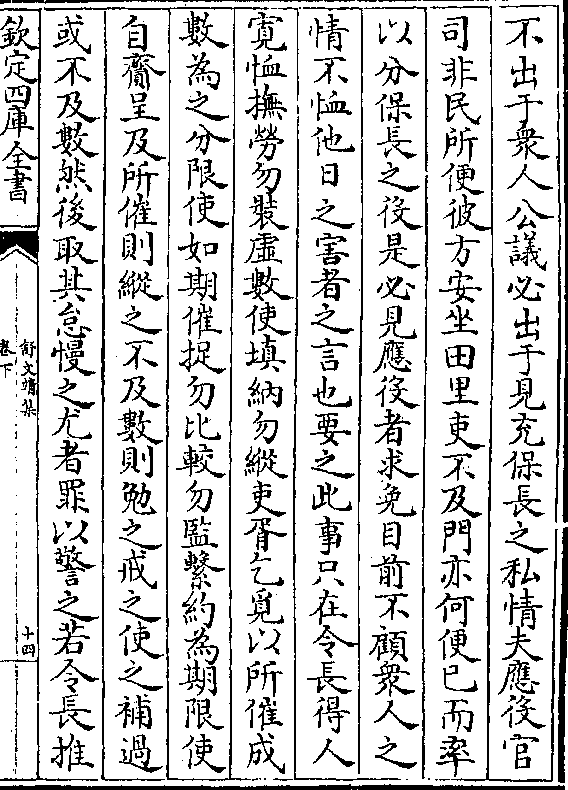 不出于衆人公議必出于見充保長之私情夫應役官
司非民所便彼方安坐田里吏不及門亦何便已而率
以分保長之役是必見應役者求免目前不顧衆人之
情不恤他日之害者之言也要之此事只在令長得人
寛恤撫勞勿裝虛數使填納勿縱吏胥乞覓以所催成
數為之分限使如期催捉勿比較勿監繫約為期限使
自齎呈及所催則縱之不及數則勉之戒之使之補過
或不及數然後取其怠慢之尤者罪以警之若令長推
欽定四庫全書
舒文靖集
卷下
十四